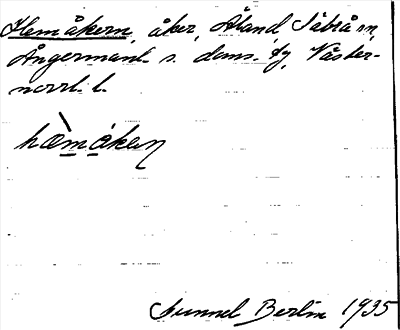 Hemåkern, åker, Åland Säbrå sn,
Ångermanl. s. doms. fg, Väster-
norrl. l.
hæ̀måkaɳ
Gunnel Berlin 1935